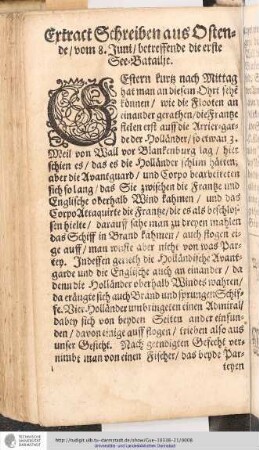 Extract Schreiben aus Osten-
de / vom 8. Juni / betreffende die erste
See-Batailje.
GEstern kurtz nach Mittag
hat man an diesem Ohrt sehen
können / wie die Flooten an
einander gerathen / die Frantze
fielen erst auff die Arrier-gar-
de der Holländer / so etwan 3.
Meil von Wall vor Blanckenburg lag / hier
schien es / das es die Holländer schlim hätten,
aber die Avantguard / und Corpo bearbeiteten
sich so lang / das Sie zwischen die Frantze und
Englische oberhalb Wind kahmen / und das
Corpo Attaquirte die Frantze / die es als beschlos-
sen hielte / darauff sahe man zu dreyen mahlen
das Schiff in Brand kahmen / auch flogen ei-
ge auff / man wuste aber nicht von was Par-
tey. Indessen gerieth die Holländische Avant-
garde und die Englische auch an einander / da
denn die Holländer oberhalb Windes wahren /
da eräugte sich auch Brand und sprungen Schif-
fe. Vier Holländer umbringeten einen Admiral /
dabey sich von beyden Seiten ander einfun-
den / davon einige auff flogen / trieben also aus
unser Gesicht. Nach geendigten Gefecht ver-
nimbt man von einen Fischer / das beyde Par-
teyen